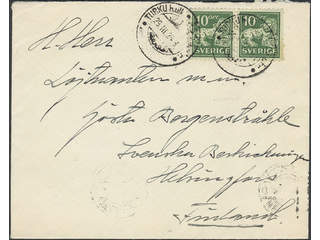 TURKU
10 10
SVERIGE SVERIGE
H. Herr
Löjtnanten m.m.
Gösta Bergenstråhle
Svenska Beskickningen
Helsingfors
Finland